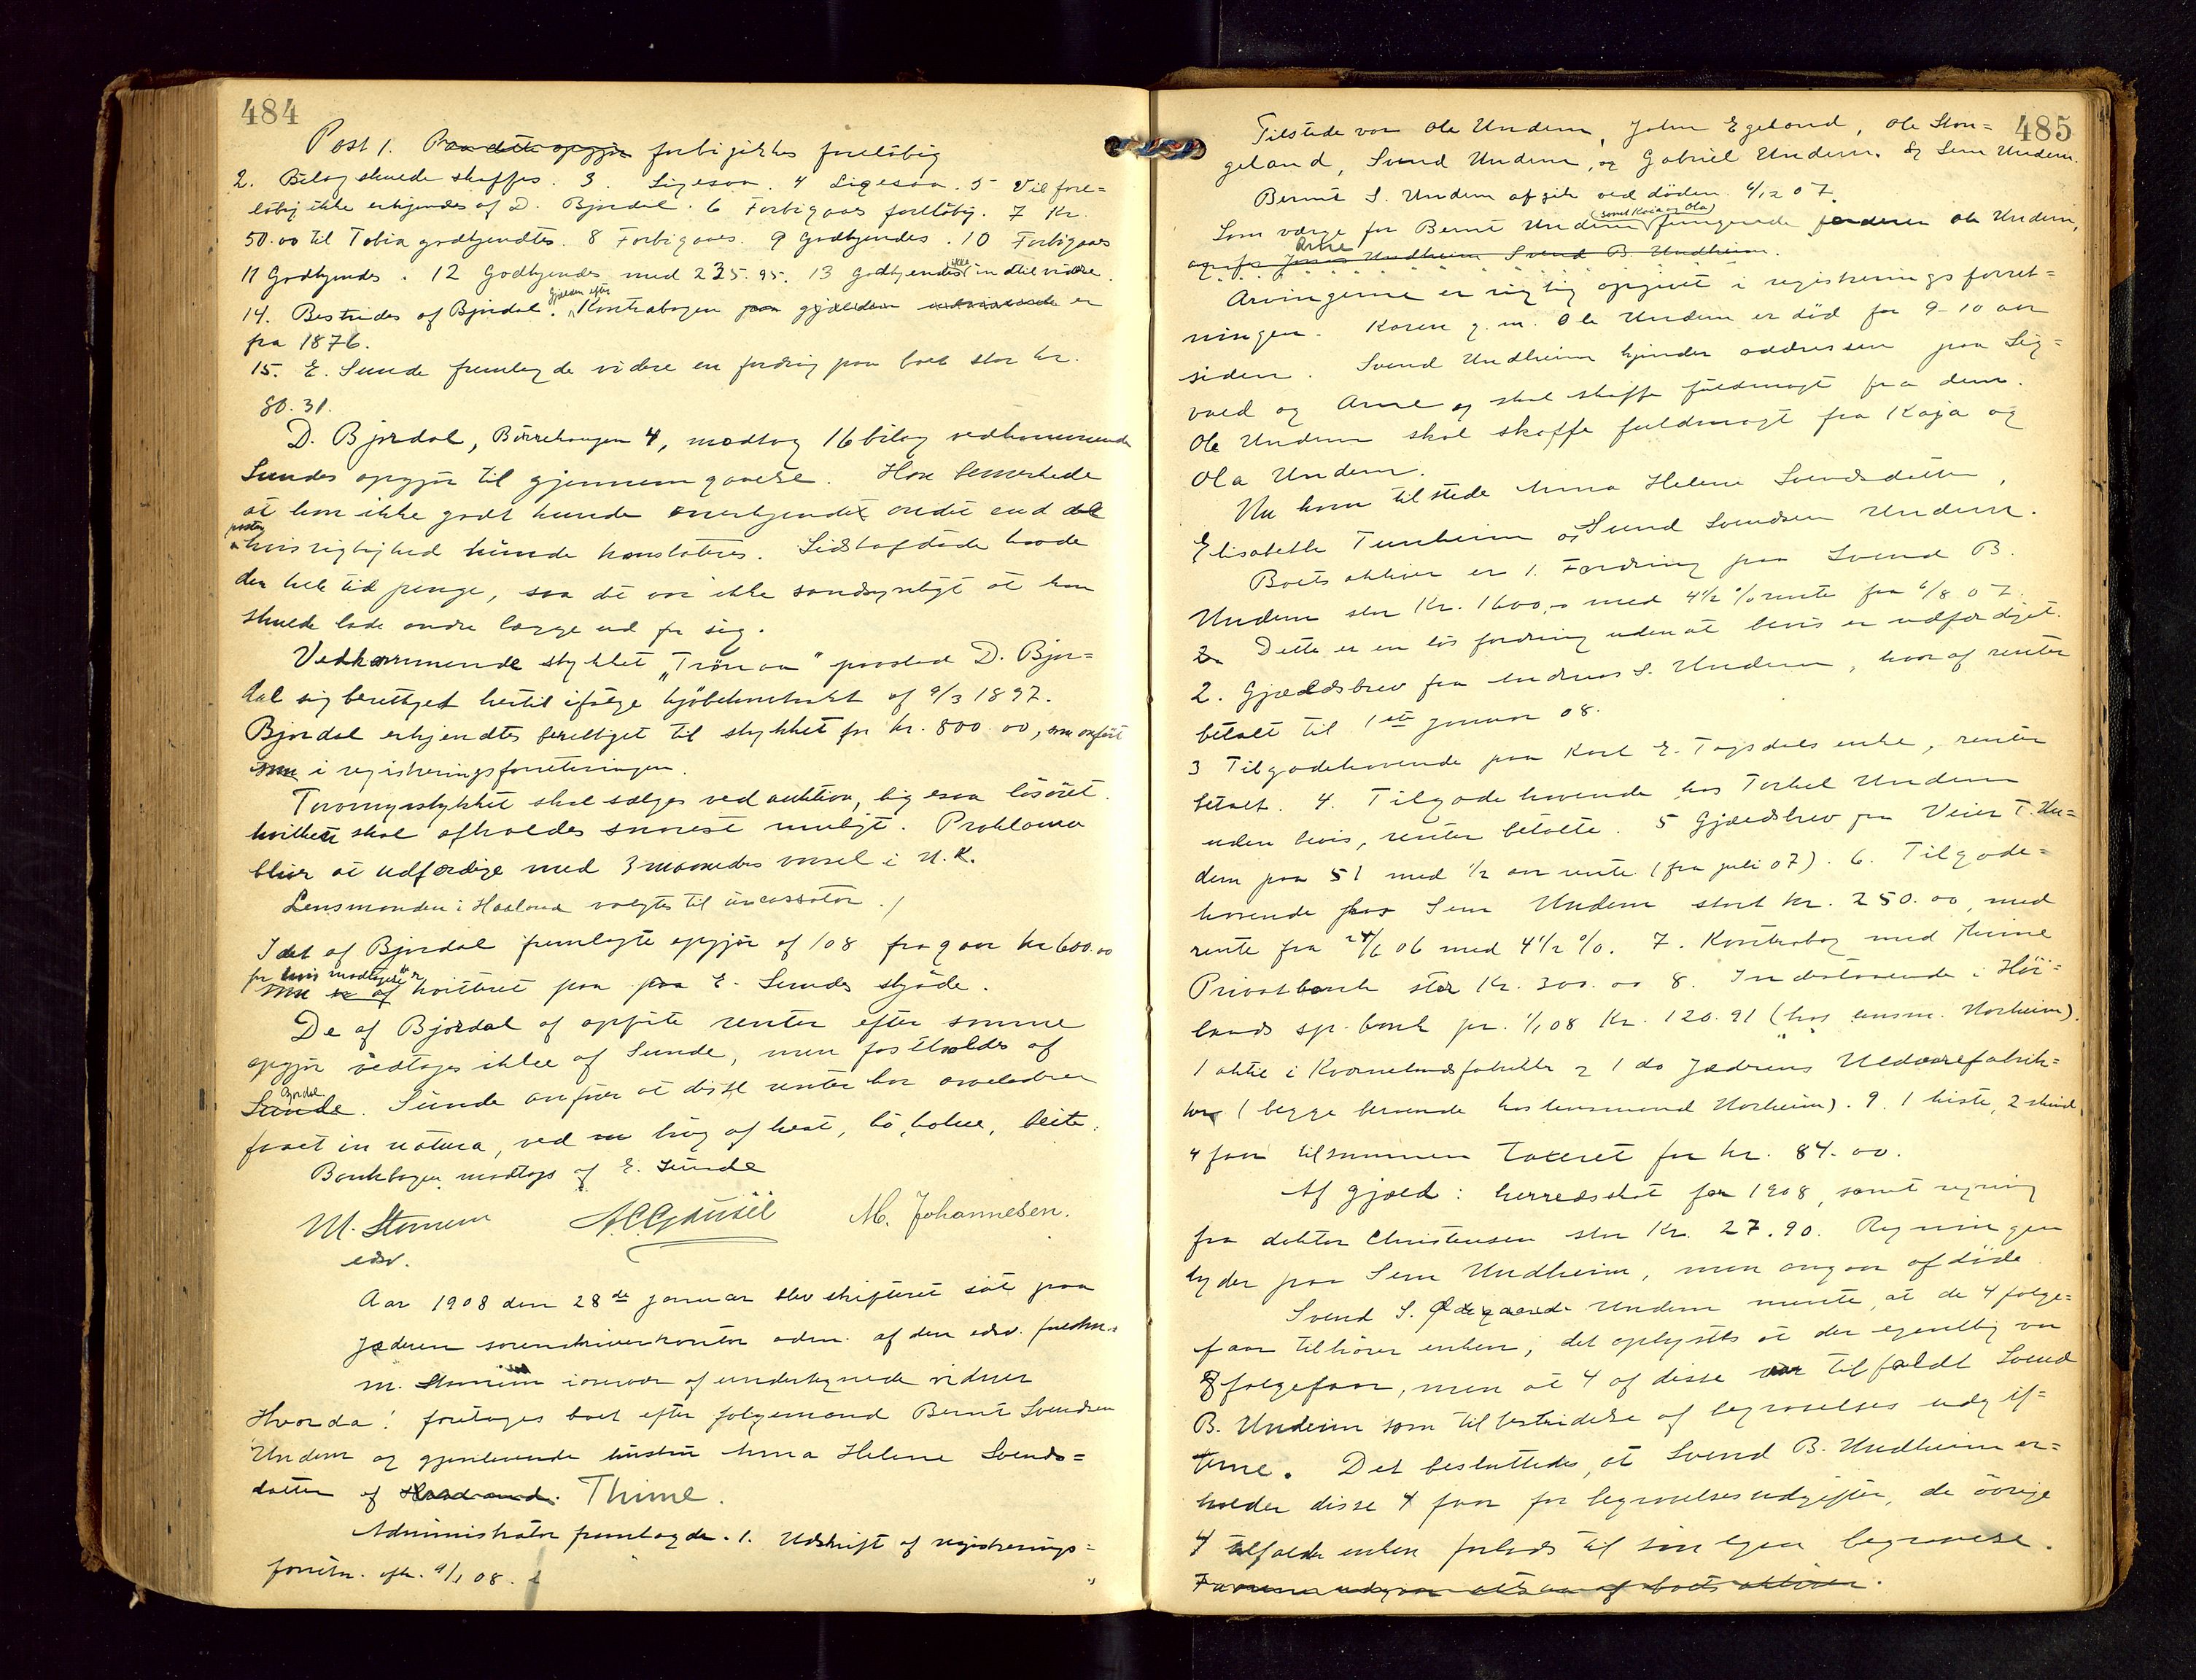 484
Post 1. Paa dette opgjør forbigikkes foreløbig
2. Bilag skulde skaffes. 3. Ligesaa. 4 Ligesaa. 5 Vil fore=
løbig ikke erkjendes af D. Bjordal. 6 Forbigaaes foreløbig. 7 Kr.
50.00 til Tobia godkjendtes. 8 Forbigaaes. 9 Godkjendes. 10 Forbigaaes
11 Godkjendes. 12 Godkjendes med 235.95. 13 Godkjendes ikke indtil videre.
14. Bestrides af Bjordal. Gjælden efter Kontrabogen paa gjælden er
fra 1876.
15. E. Sunde fremlagde videre en fordring paa boet stor kr.
80.31.
D. Bjordal, Børrehaugen 4, modtog 16 bilag vedkommende
Sundes opgjør til gjennemgaaelse. Han bemerkede
at han ikke godt kunde anerkjendt andet end de
poster hvis rigtighed kunde konstateres. Sidstafdøde havde
den hele tid penge, saa det var ikke sandsynligt at han
skulde lade andre lægge ud for sig.
Vedkommende stykket "Trønaa" paastod D. Bjor=
dal sig berettiget hertil ifølge kjøbekontrakt af 9/3 1897.
Bjordal erkjendtes berettiget til stykket for kr. 800.00, som anført
i registreringsforretningen.
Torvmyrstykket skal sælges ved auktion, ligesaa løsøret.
hvilken skal afholdes snarest muligt. Proklama
bliver at udfærdige med 3 maaneders varsel i N.K.
Lensmanden i Haaland valgtes til incassator.
I det af Bjordal fremlagte opgjør af 108 fragaar kr 600.00
for hvis modtagelse er kvitteret paa E. Sundes skjøde.
De af Bjordal opførte renter efter samme
opgjør vedtages ikke af Sunde, men fastholdes af
Sunde Bjordal. Sunde anfører at disse renter har arveladeren
faaet in natura, ved brug af hest, bolig, beite.
Bankbogen modtoges af E. Sunde
M. Stornem A.C. Gausel M. Johannesen.
edsv.
Aar 1908 den 28de januar blev skifteret sat paa
Jæderen sorenskriverkontor adm. af den edsv. fuldm.
M. Stornem i overvær af undertegnede vidner
Hvorda: foretoges boet efter følgemand Bernt Svendsen
Undem og gjenlevende hustru Anna Helene Svends=
datter af Thime.
Administrator fremlagde. 1. Udskrift af registrerings=
forretn. afh. 9/1 08.
485
Tilstede var Ole Undem, John Egeland, Ole Stan=
geland, Svend Undem, og Gabriel Undem. og Sem Undem.
Bernt S. Undem afgik ved døden 6/12 07.
Som værge for Bernt Undem (samt Kaia og Ola) fungerede faderen Ole Undem,
og for Jonas Arne Undheim Svend B. Undheim.
Arvingerne er rigtig opgivet i registreringsforret=
ningen. Karen g.m. Ole Undem er død for 9-10 aar
siden. Svend Undheim kjender addressen paa Sig=
vald og Arne og skal skaffe fuldmagt fra dem.
Ole Undem skal skaffe fuldmagt fra Kaja og
Ola Undem.
Nu kom tilstede Anna Helene Svendsdatter,
Elisabeth Tunheim og Svend Svendsen Undem.
Boets aktiver er 1. Fordring paa Svend B.
Undem stor Kr. 1600,00 med 4½ % rente fra 6/8 07.
Dette er en løs fordring uden at bevis er udfærdiget.
2. Gjældsbrev fra Andreas S. Undem, hvoraf renter
betalt til 1ste januar 08.
3 Tilgodehavende paa Karl E. Tagsdals enke, renter
betalt. 4. Tilgodehavende hos Torkel Undem
uden bevis, renter betalte. 5 Gjældsbrev fra Veier T. Un=
dem paa 51 med ½ aar rente (fra juli 07). 6. Tilgode=
havende hos Sem Undem stort kr. 250.00, med
rente fra 24/6 06 med 4½ %. 7. Kontrabog med Thime
Privatbank stor Kr. 300.00 8. Indestaaende i Høi=
lands sp.bank pr. 1/1 08 Kr. 120.91 (hos lensm. Norheim).
1 aktie i Kvernelandsfabrikk & 1 do Jæderens Uldvarefabrik=
ker (begge beroende hos lensmand Norheim). 9. 1 kiste, 2 skind
4 faar tilsammen taxeret for kr. 84.00.
Af gjæld: herredsskat for 1908, samt regning
fra doktor Christensen stor Kr. 27.90. Regningen
lyder paa Sem Undheim, men angaar afdøde.
Svend S. Ødegaard Undem mente, at de 4 følge=
faar tilhører enken; det oplystes at der egentlig var
8 følgefaar, men at 4 af disse var tilfaldt Svend
B. Undeim som til bestridelse af begravelses udgif=
terne. Det besluttedes, at Svend B. Undheim er=
holder disse 4 faar for begravelsesudgifter, de øvrige
4 tilfalder enken forlods til sin egen begravelse.
Faarene udgaar altsaa af boets aktiver.